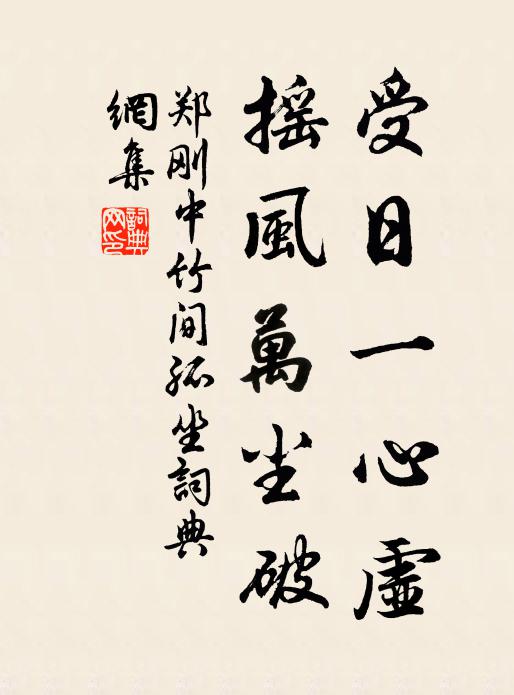 受日一心虛
摇風萬尘破
郑刚中竹间孤坐詞典
網集
詞典
网印